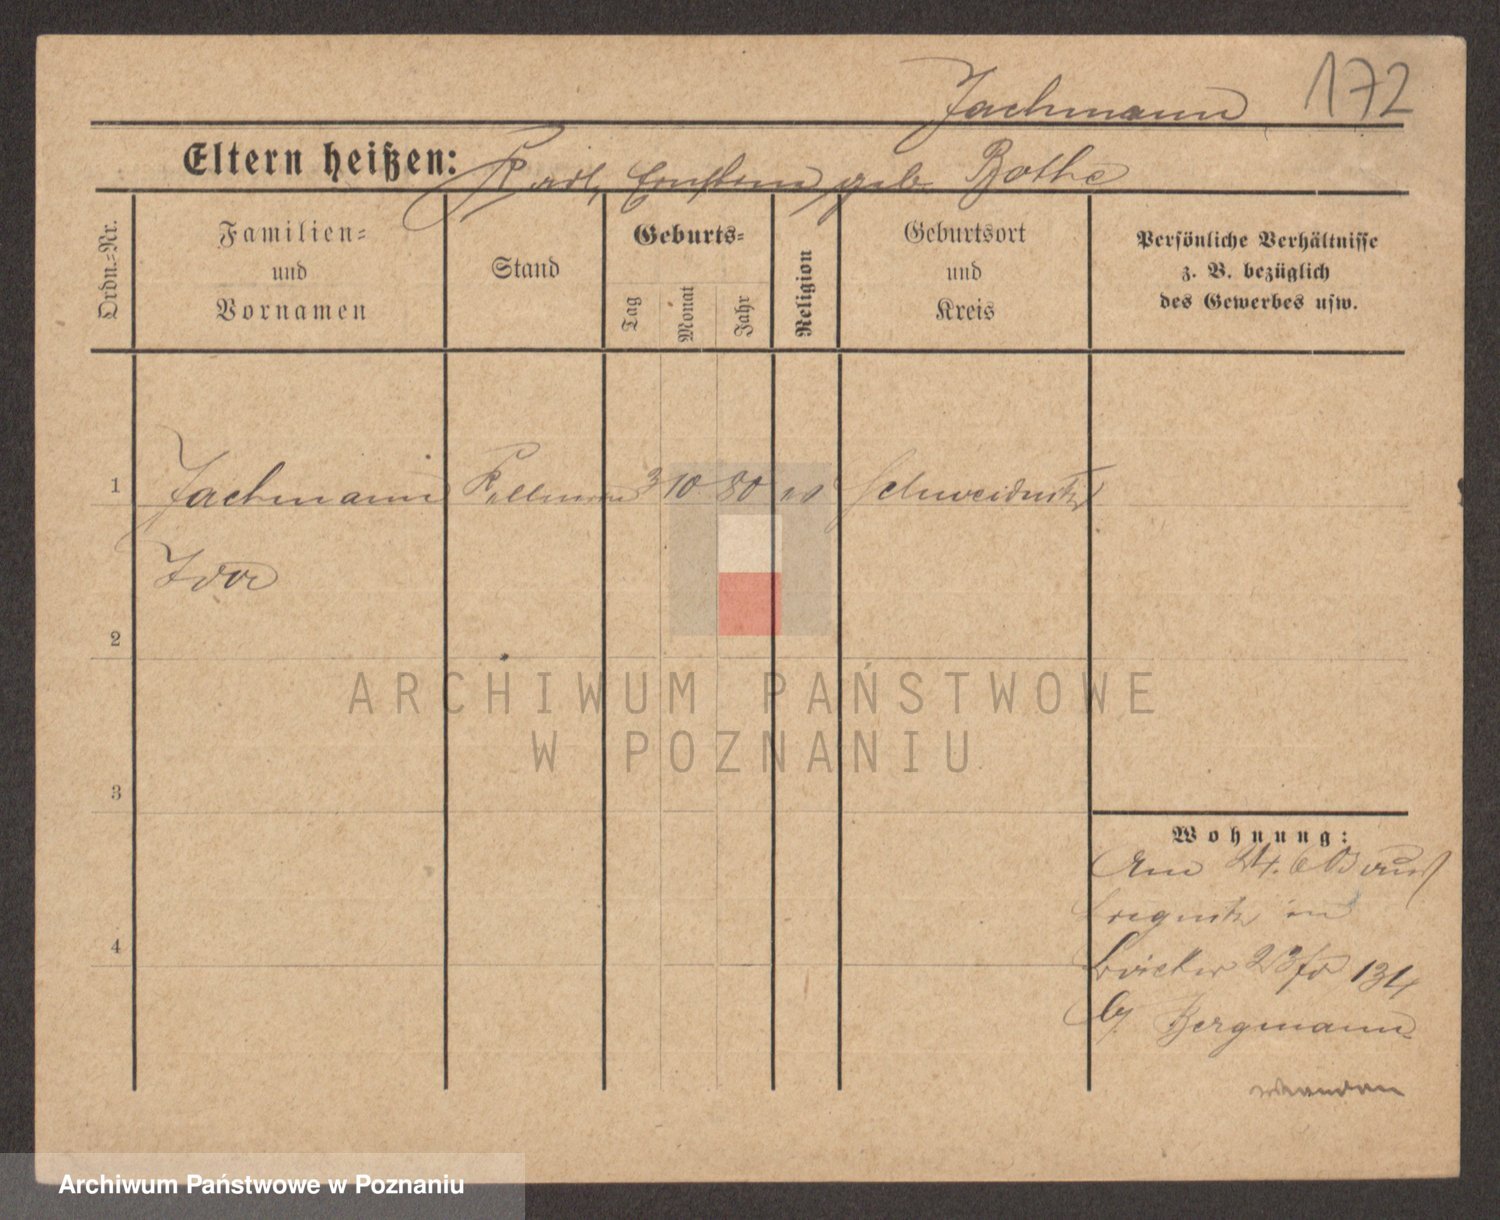 Jachmann 172
Eltern heißen: Karl, Ernstine geb. Bothe
Ordn.=Nr.
Familien=
und
Vornamen
Stand
Geburts=
Tag
Monat
Jahr
Religion
Geburtsort
und
Kreis
Persönliche Verhältnisse
z. B. bezüglich
des Gewerbes usw.
1 Jachmann Kellner 3 10 80 Schweidnitz
2
3
4
Wohnung:
24. 6
134
Bergmann
ARCHIWUM PAŃSTWOWE
W POZNANIU
Archiwum Państwowe w Poznaniu